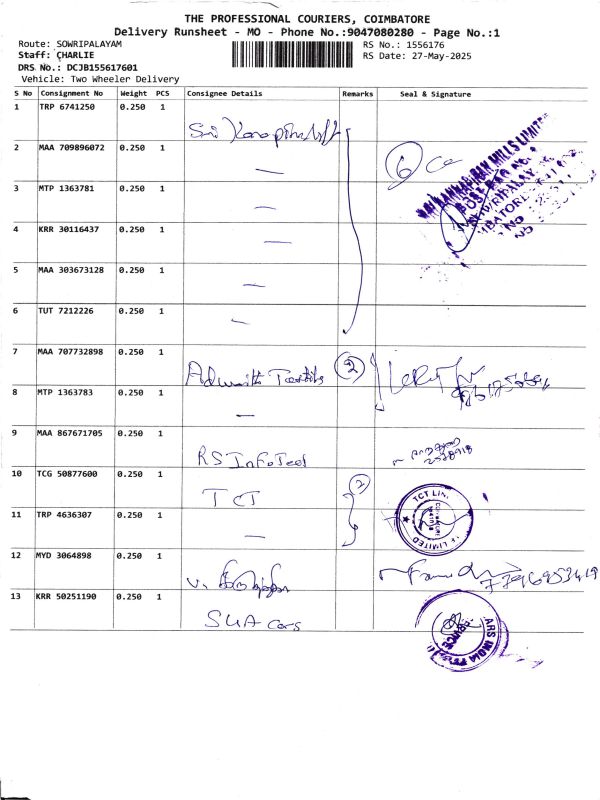 THE PROFESSIONAL COURIERS, COIMBATORE
Delivery Runsheet - MO - Phone No.:9047080280 - Page No.:1
Route: SOWRIPALAYAM
RS No.: 1556176
Staff: CHARLIE
RS Date: 27-May-2025
DRS No.: DCJB155617601
Vehicle: Two Wheeler Delivery
S No Consignment No Weight PCS Consignee Details Remarks Seal & Signature
1 TRP 6741250 0.250 1
2 MAA 709896072 0.250 1 — 6
3 MTP 1363781 0.250 1 —
4 KRR 30116437 0.250 1 —
5 MAA 303673128 0.250 1 —
6 TUT 7212226 0.250 1 —
7 MAA 707732898 0.250 1 2
8 MTP 1363783 0.250 1 —
9 MAA 867671705 0.250 1 RS InfoTech
10 TCG 50877600 0.250 1 TCT 2
TCT
LIMITED
11 TRP 4636307 0.250 1 —
12 MYD 3064898 0.250 1
13 KRR 50251190 0.250 1
ARS INDIA